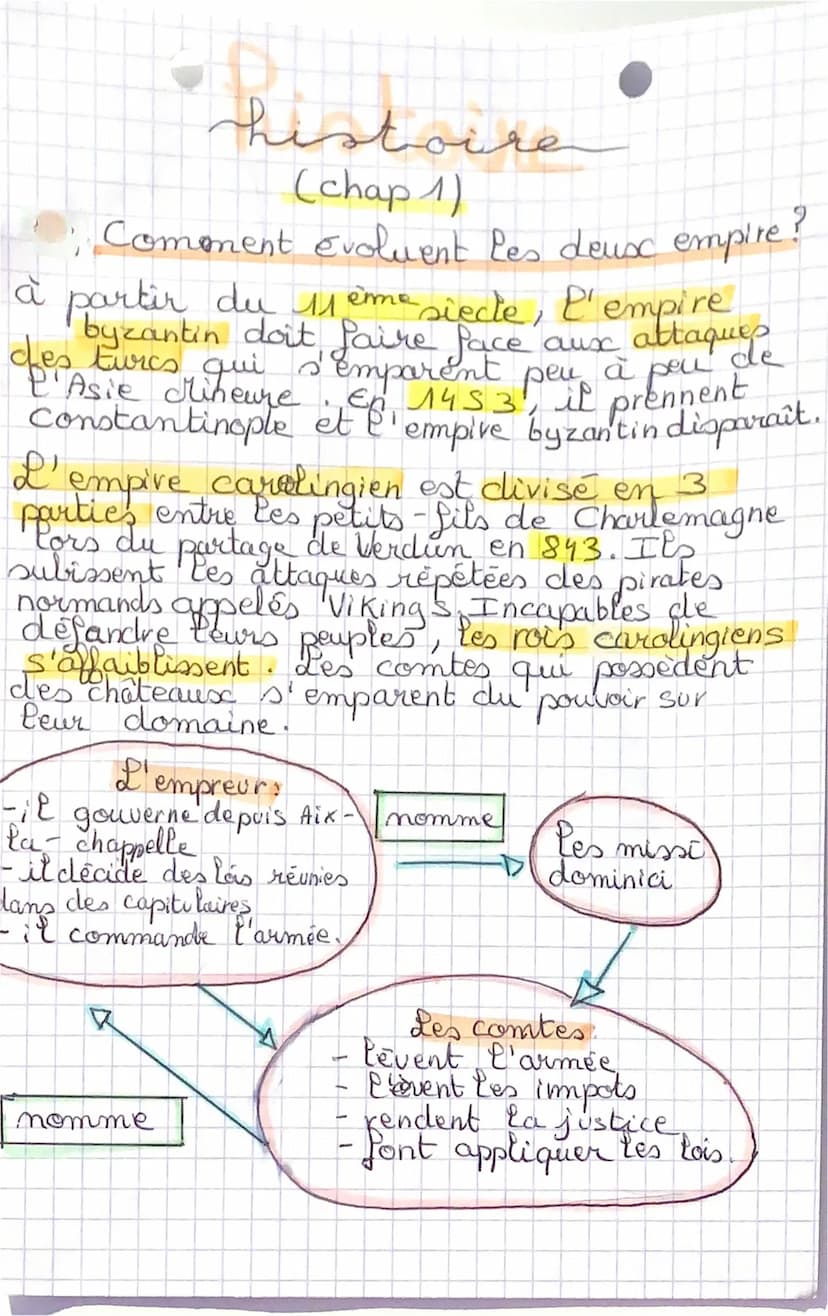 histoire
histoire
(chap 1)
Comment évoluent les deux empire?
à partir du 11ème siecle, l'empire
byzantin doit faire face aux attaques
des turcs qui s'emparent peu à peu de
l'Asie Mineure. En 1453, il prennent
Constantinople et l'empire byzantin disparaît.
L'empire carolingien est divisé en 3
parties entre les petits-fils de Charlemagne
lors du partage de Verdun en 843. Ils
subissent les attaques répétées des pirates
normands appelés Vikings. Incapables de
défandre leurs peuples, les rois carolingiens
s'affaiblissent. Les comtes qui possèdent
des châteaux s'emparent du pouvoir sur
leur domaine.
L'empreur:
-il gouverne depuis Aix-
la-chappelle
-il décide des lois réunies
dans des capitulaires
-il commande l'armée.
nomme
Les missi
dominici
Les comtes:
- lèvent l'armée
- lèvent les impots
- rendent la justice
- font appliquer les lois.
nomme